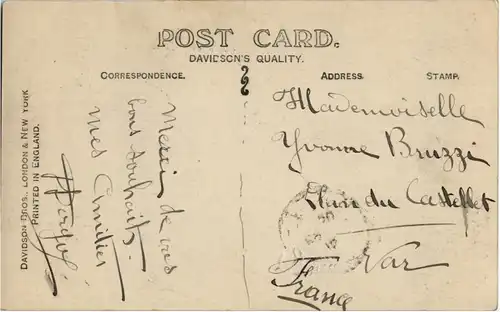 POST CARD.
DAVIDSON'S QUALITY.
CORRESPONDENCE.
ADDRESS.
STAMP.
DAVIDSON BROS., LONDON & NEW YORK
PRINTED IN ENGLAND.
Merci de vos
bons souhaits.
mes Amitiés
Mademoiselle
Yvonne Bruzzi
Plan du Castellet
Var
France